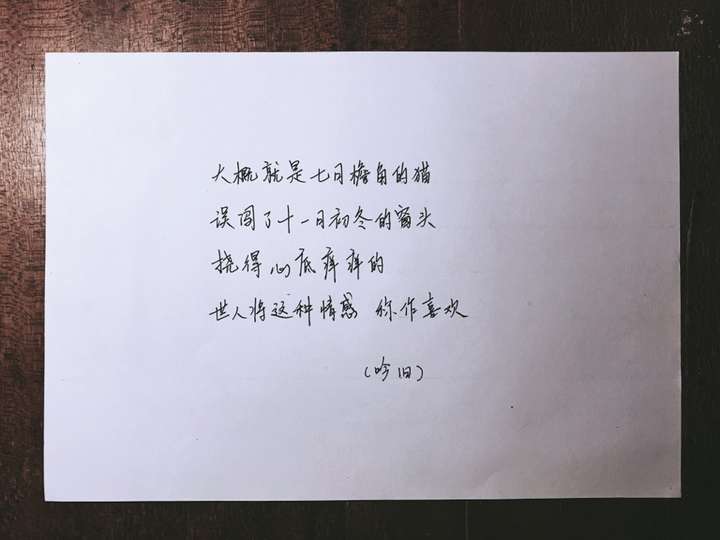 大概就是七月檐角的猫
误闯了十一月初冬的窗头
挠得心底痒痒的
世人将这种情感 称作喜欢
（吟旧）